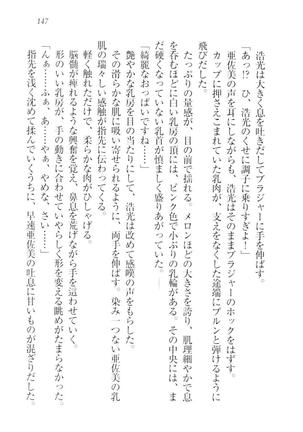 147
浩光は大きく息を吐きだしてブラジャーに手を伸ばす。
「あっ!? ひ、浩光のくせに調子に乗りすぎよ！」
亜佐美の声を耳にしながらも、浩光はそのままブラジャーのホックをはずす。
カップに押さえこまれていた乳肉が、支えをなくした途端にプルンと弾けるように
飛びだした。
たっぷりの量感が揺れる。メロンほどの大きさを誇り、肌理細やかで息
を呑むほどに白い乳房の頂には、ピンク色で小ぶりの乳輪がある。その中央には、ま
だ硬くなっていない乳首が慎ましく盛りあがっていた。
「綺麗なおっぱいですね……」
艶やかな乳房を目の当たりにして、浩光は改めて感嘆の声をもらした。
その滑らかな肌に吸い寄せられるように、両手を伸ばす。染み一つない亜佐美の乳
肌の瑞々しい感触が指先に伝わってくる。
軽く触れただけで、柔らかな肉がひしゃげる。
脳髄が痺れるような興奮を覚え、鼻息を荒げながら手を這わせていく。
形のいい乳房が、手の動きに合わせていやらしく形を変える眺めがたまらなかった。
「ん……ふぁ、あ……やぁ、やめな、さい……」
指先を浅く沈めて揉んでいくうちに、早速亜佐美の吐息に甘いものが混ざりだした。